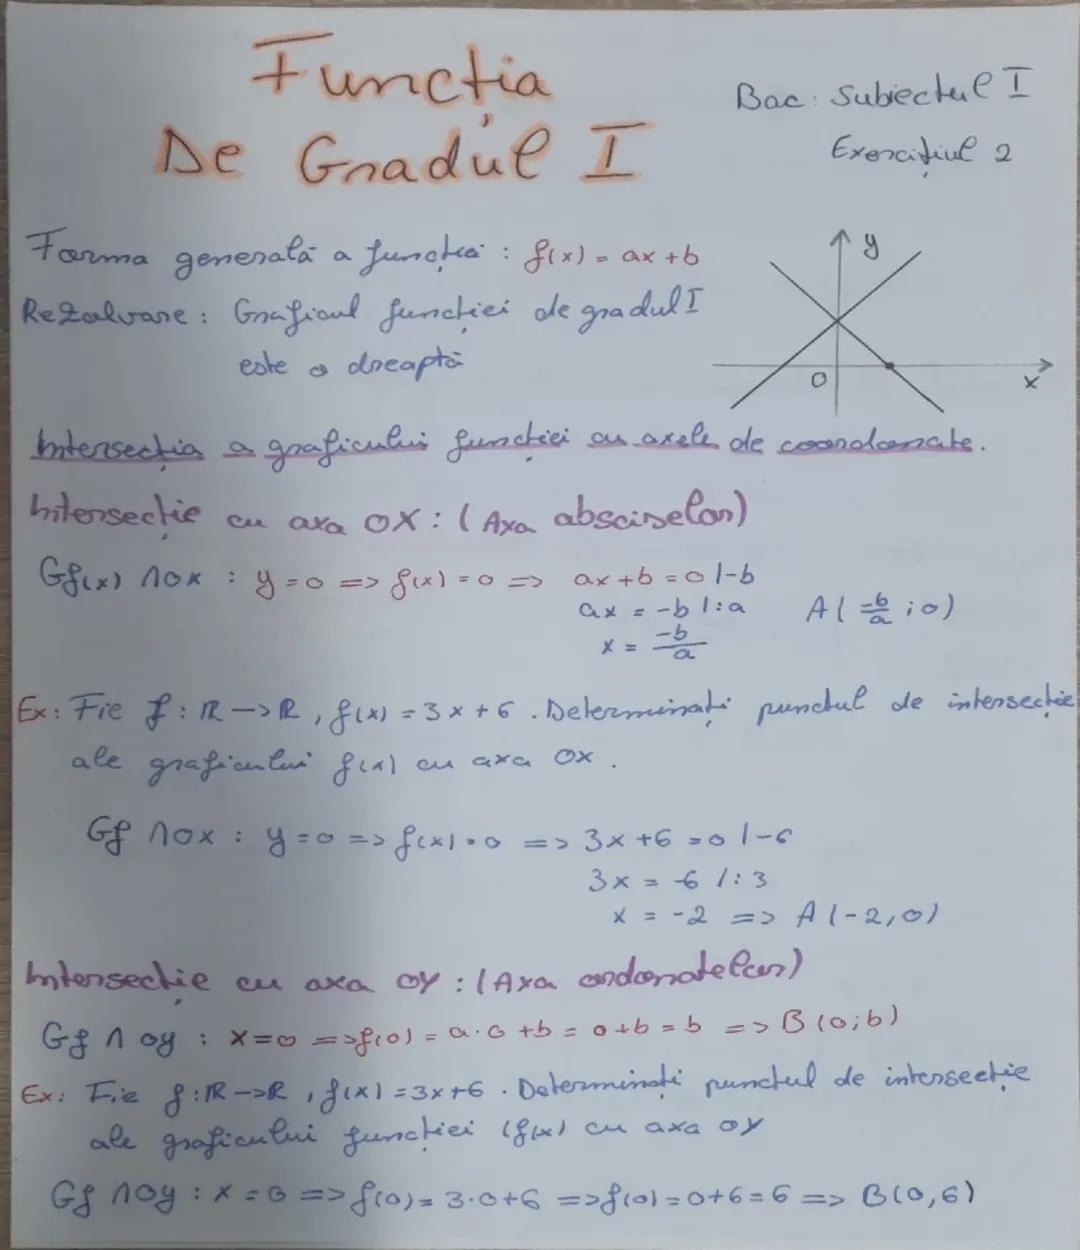 Funcția
De Gradul I
Bac: Subiectul I
Exercițiul 2
Forma generală a funcției : f(x) = ax + b
y
Rezolvare : Graficul funcției de gradul I
este o dreaptă
O
x
Intersecția a graficului funcției cu axele de coordonate.
Intersecție cu axa OX : (Axa absciselor)
Gf(x) ∩ OX : y = 0 => f(x) = 0 => ax + b = 0 |-b
ax = -b |:a
x = -b/a
A(-b/a ; 0)
Ex: Fie f : R → R , f(x) = 3x + 6 . Determinați punctul de intersecție
ale graficului f(x) cu axa OX .
Gf ∩ OX : y = 0 => f(x) = 0 => 3x + 6 = 0 |-6
3x = -6 |:3
x = -2 => A(-2,0)
Intersecție cu axa OY : (Axa ordonatelor)
Gf ∩ Oy : x = 0 => f(0) = a·0 + b = 0 + b = b => B(0;b)
Ex: Fie f : R → R , f(x) = 3x + 6 . Determinați punctul de intersecție
ale graficului funcției (f(x) cu axa OY
Gf ∩ Oy : x = 0 => f(0) = 3·0+6 => f(0) = 0+6 = 6 => B(0,6)